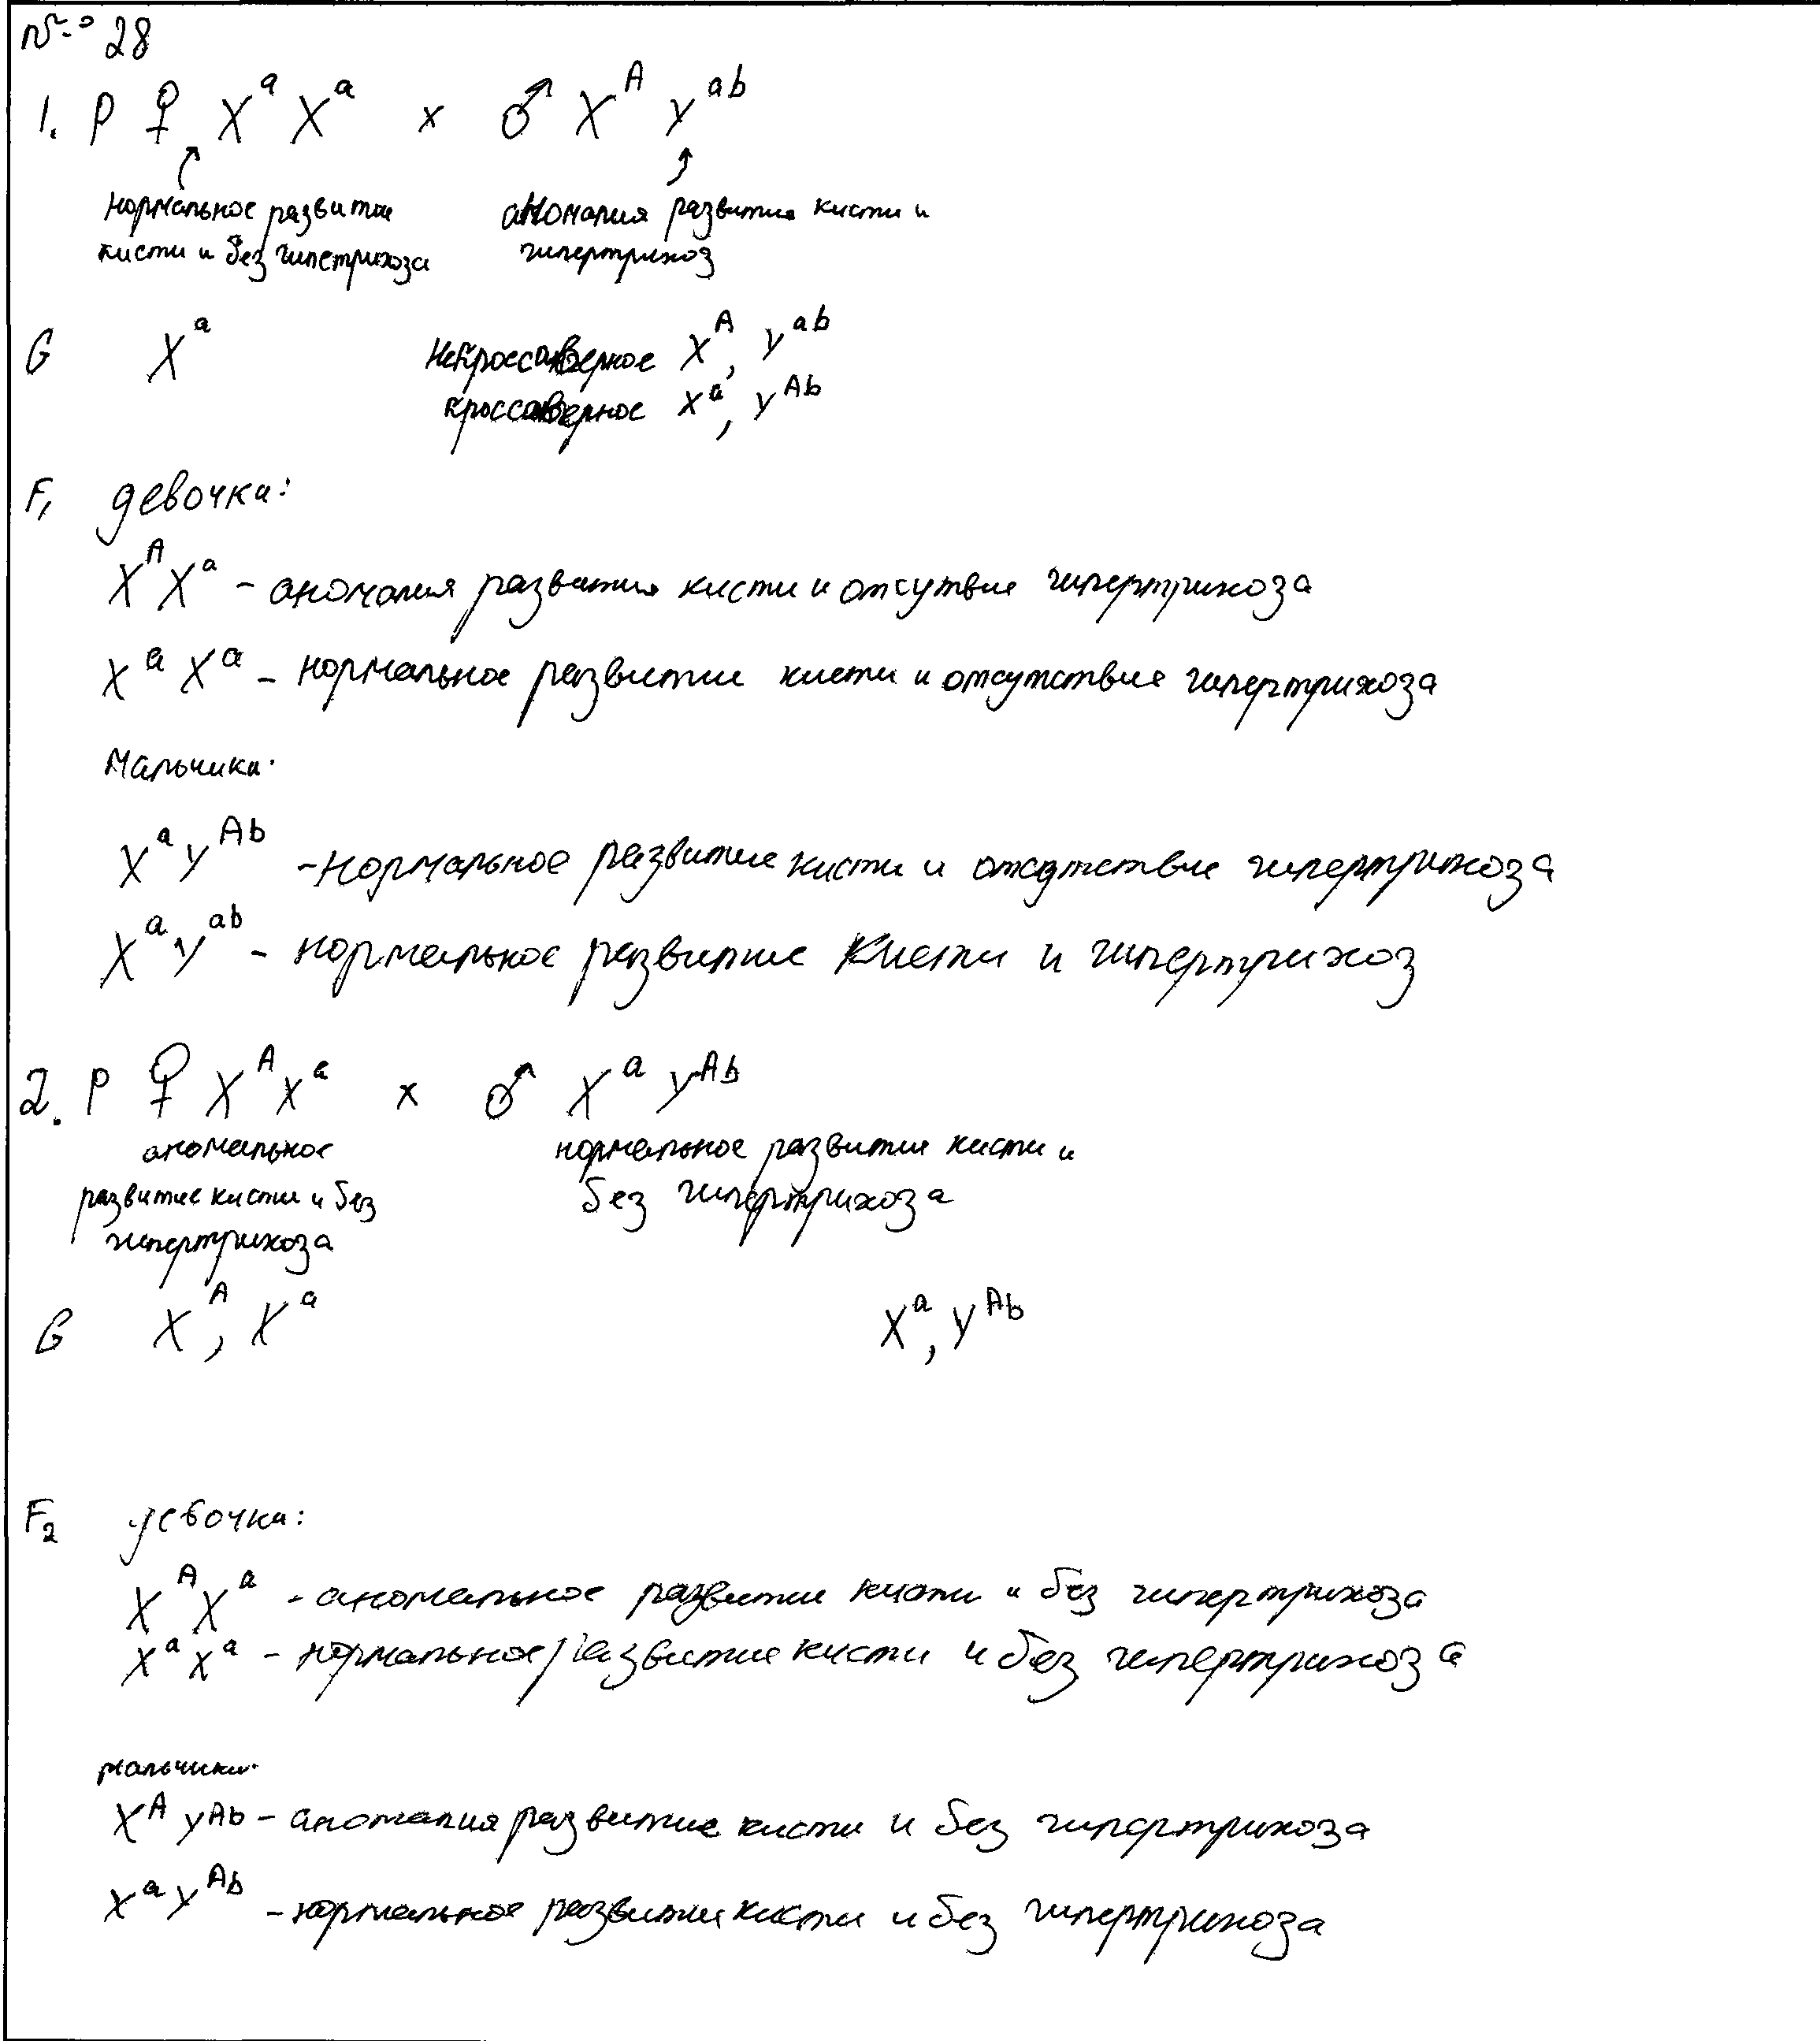 № 28
1. P ♀ X^a X^a × ♂ X^A Y^ab
нормальное развитие аномалия развития кисти и
кисти и без гипетрихоза гипертрихоз
G X^a некроссоверное X^A, Y^ab
кроссоверное X^a, Y^Ab
F1 девочки:
X^A X^a - аномалия развития кисти и отсутвие гипертрихоза
X^a X^a - нормальное развитие кисти и отсутствие гипертрихоза
Мальчики:
X^a Y^Ab - нормальное развитие кисти и отсутствие гипертрихоза
X^a Y^ab - нормальное развитие кисти и гипертрихоз
2. P ♀ X^A X^a × ♂ X^a Y^Ab
аномальное нормальное развитие кисти и
развитие кисти и без без гипертрихоза
гипертрихоза
G X^A, X^a X^a, Y^Ab
F2 девочки:
X^A X^a - аномальное развитие кисти и без гипертрихоза
X^a X^a - нормальное развитие кисти и без гипертрихоза
мальчики:
X^A Y^Ab - аномалия развитие кисти и без гипертрихоза
X^a Y^Ab - нормальное развитии кисти и без гипертрихоза